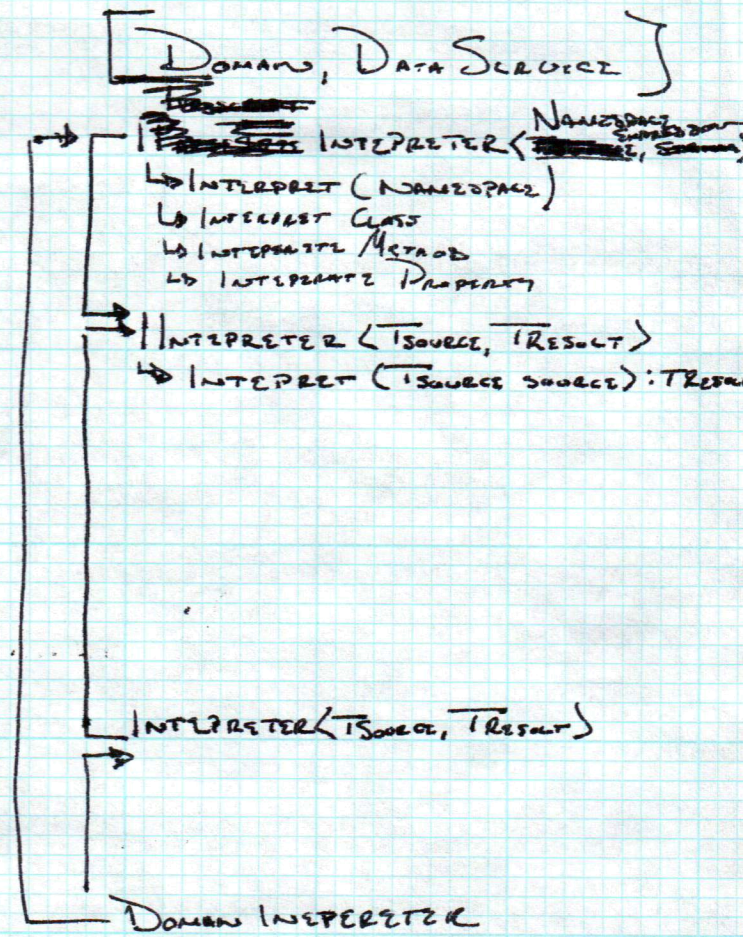 [Domain, Data Service]
I Intepreter<Namespace
Interpret (Namespace)
Interpret Class
Inteperate Method
Inteperate Property
IIntepreter<TSource, TResult>
Intepret (TSource source): TResult
Intepreter<TSource, TResult>
Doman Inepereter